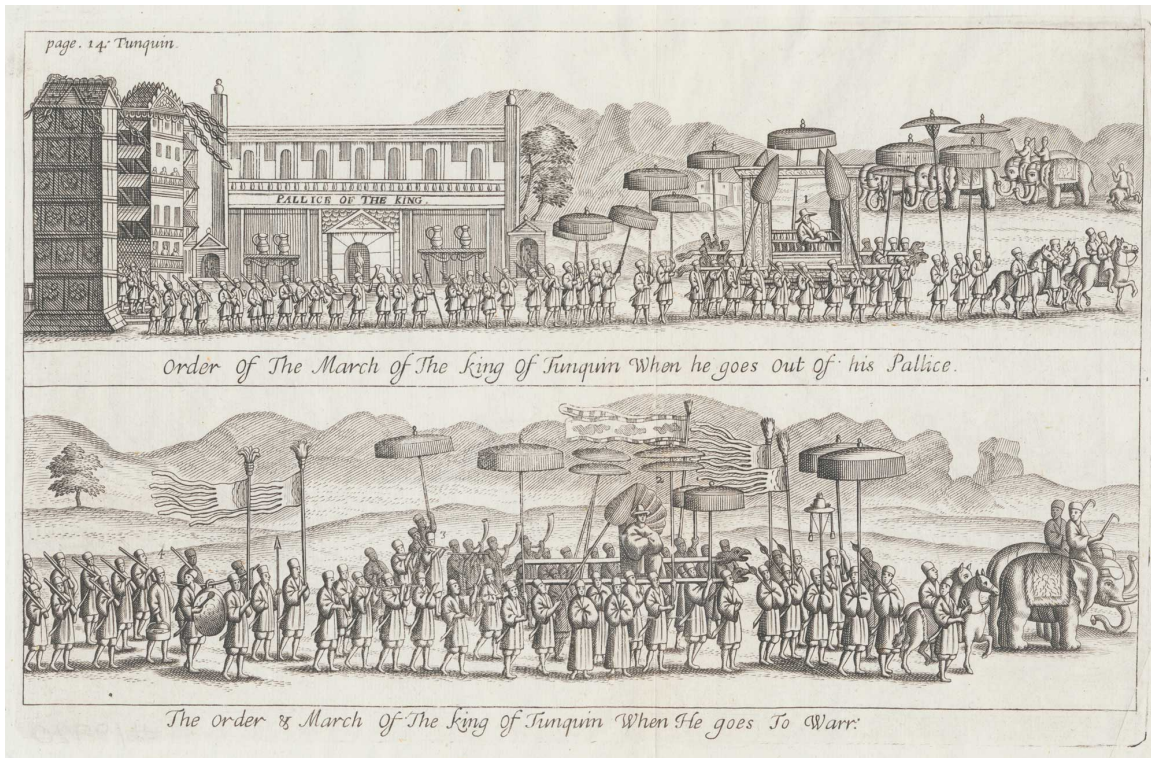 page. 14: Tunquin.
PALLICE OF THE KING.
1
Order Of The March of The king Of Tunquin When he goes Out Of his Pallice.
2
3
4
The Order & March Of The king Of Tunquin When He goes To Warr: